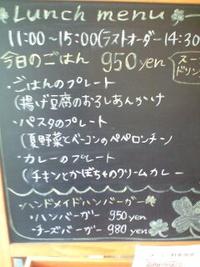 Lunch menu
11:00~15:00(ラストオーダー14:30
今日のごはん 950yen
スー
ドリン
・ごはんのプレート
(揚げ豆腐のおろしあんかけ
・パスタのプレート
(夏野菜とベーコンのペペロンチーノ
・カレーのプレート
(チキンとかぼちゃのクリームカレー
ハンドメイドハンバーガー
・ハンバーガー 950yen
・チーズバーガー 980yen